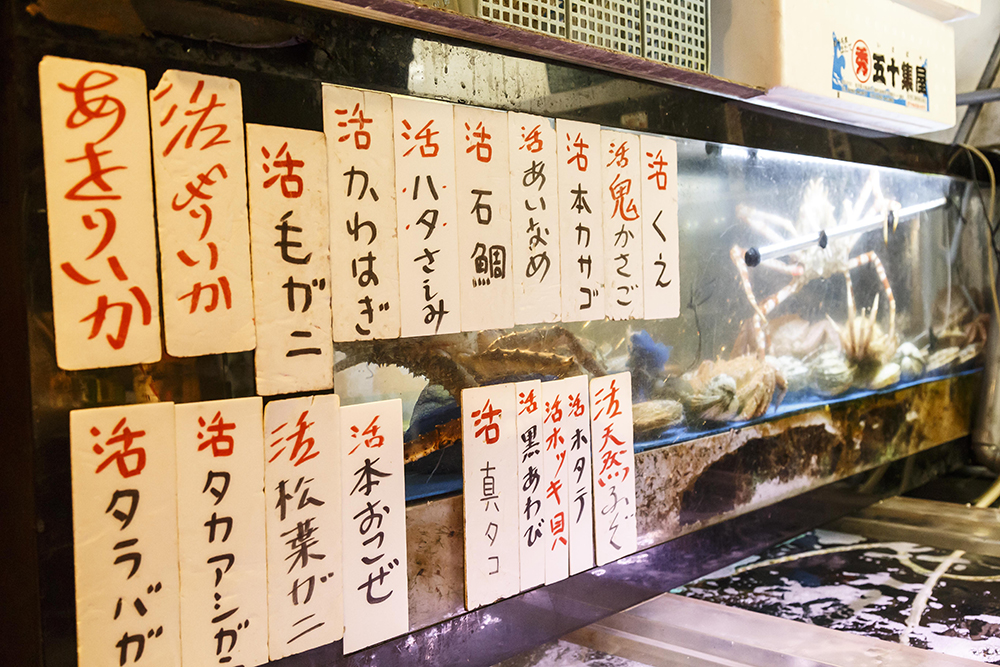 あきりいか
活 やりいか
活 毛ガニ
活 かわはぎ
活 ハタさしみ
活 石鯛
活 あいなめ
活 本カサゴ
活 鬼かさご
活 くえ
活 タラバガ
活 タカアシガ
活 松葉ガニ
活 本おこぜ
活 真タコ
活 黒あわび
活 ホッキ貝
活 ホタテ
活 天然ふぐ
秀 五十集屋